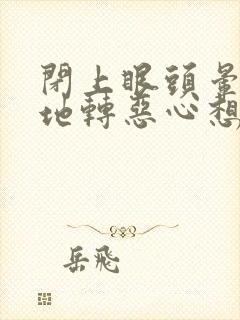 閉上眼頭暈
地轉惡心想
岳飛